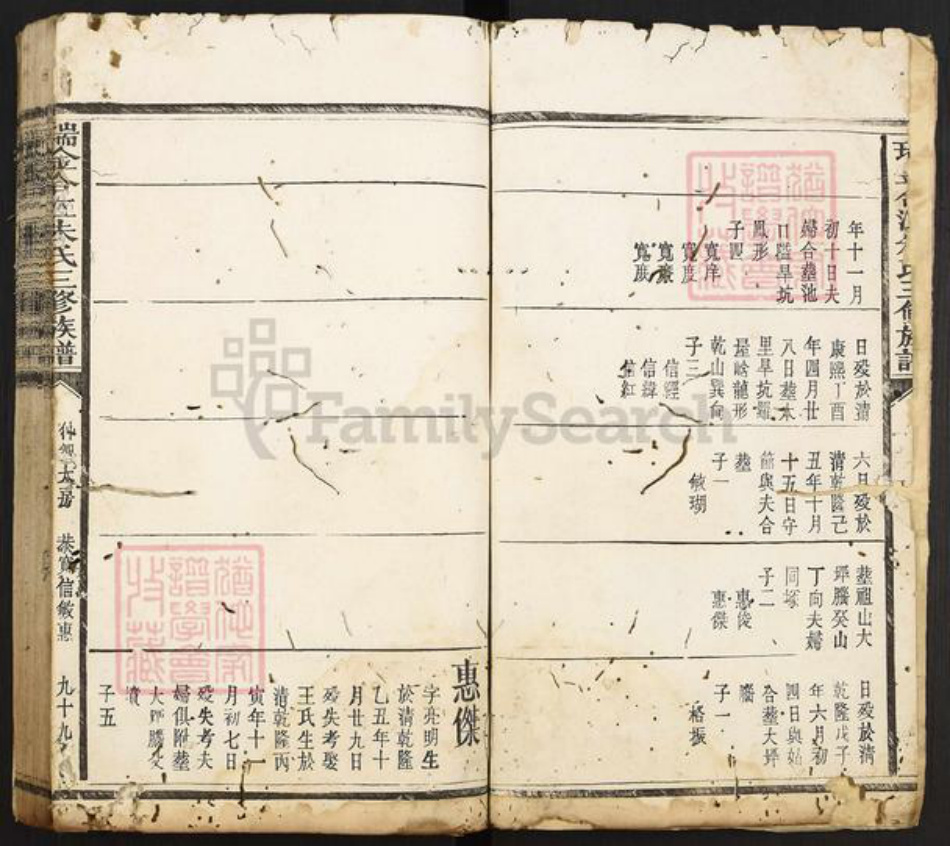 年十一月
初十日夫
婦合塟池
口隘旱坑
鳳形
子四
寬庠
寬度
日殁於清
康熙丁酉
年四月廿
八日塟水
里旱坑
龍形
乾山巽向
子三
信經
信緯
信紅
六月殁於
清乾隆己
丑年十月
十五日守
節與夫合
塟
子一
敏瑚
塟祖山大
坪腦癸山
丁向夫婦
同塚
子二
惠俊
惠傑
日殁於清
乾隆戊子
年六月初
四日與姑
合塟大坪
腦
子一
裕振
惠傑
字亮明生
於清乾隆
乙丑年十
月廿九日
殁失考娶
王氏生於
清乾隆丙
寅年十一
月初七日
殁失考夫
婦俱附塟
大坪腦父
墳
子五
瑞金合溪朱氏三修族譜
大房
恭寬信敏惠
九十九
猶他家譜學會收藏
FamilySearch